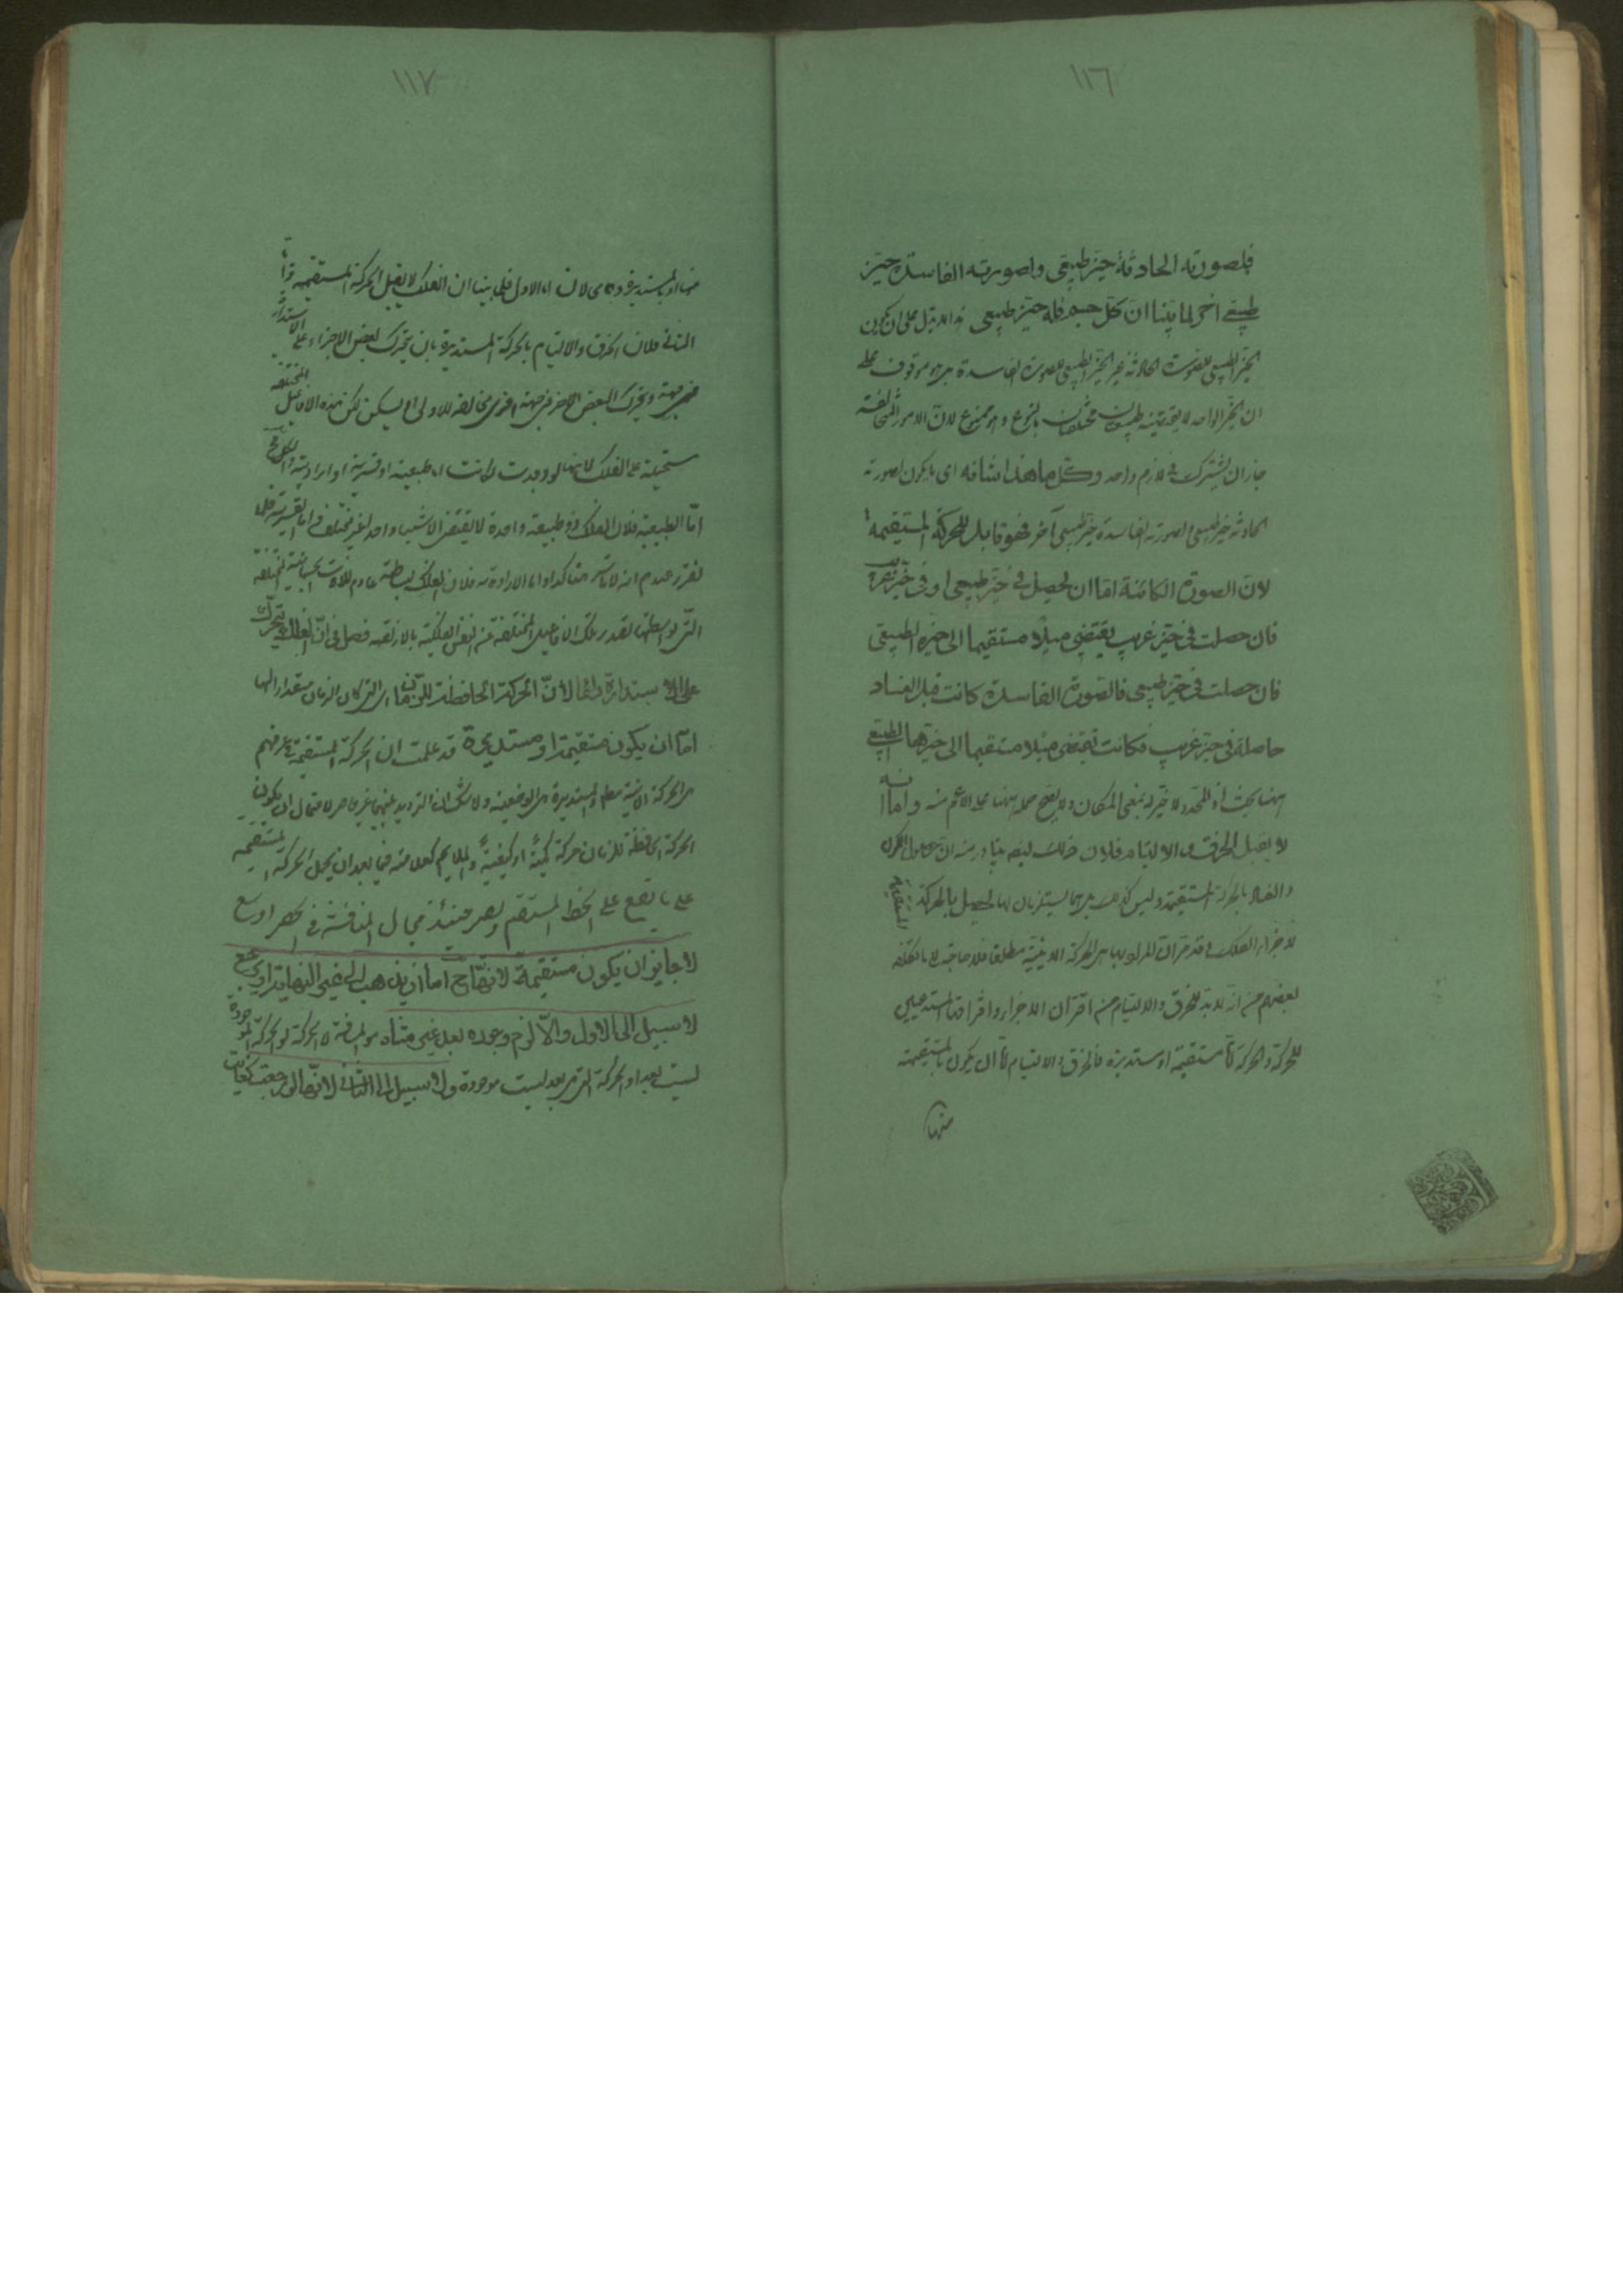 ١١٦
فلصورته الحادثة حيز طبيعى ولصورته الفاسدة حيز
طبيعى اخر لما بينا ان كل جسم فله حيز طبيعى هذا لا يدل على ان يكون
الحيز الطبيعى للصورة الحادثة غير الحيز الطبيعى للصورة الفاسدة بل هو موقوف على
ان الحيز الواحد لا يقتضيه طبيعتان مختلفتان بالنوع وهو ممنوع لان الامور المتخالفة
جاز ان يشترك فى لازم واحد وكل ما هذا شانه اى ما يكون لصورته
الحادثة حيز طبيعى ولصورته الفاسدة حيز طبيعى آخر فهو قابل للحركة المستقيمة
لان الصورة الكائنة اما ان يحصل فى حيز طبيعى او فى حيز غريب
فان حصلت فى حيز غريب يقتضى ميلا مستقيما الى حيزه الطبيعى
فان حصلت فى حيز طبيعى فالصورة الفاسدة كانت قبل الفساد
حاصلة فى حيز غريب فكانت تقتضى ميلا مستقيما الى حيزها الطبيعى
ههنا بحث اذ المحدد لا حيز له بمعنى المكان ولا يصح حمله ههنا على الاعم منه واما انه
لا يقبل الخرق والالتيام فلان ذلك ايضا
والفساد بالحركة المستقيمة وليس كذلك بل هما يستلزمان لها يحصل بالحركة المستقيمة
لاجزاء الفلك قد مر ان المراد بها هى الحركة الاينية مطلقا فلا حاجة الى ما تكلفه
بعضهم من انه لا بد للخرق والالتيام من اقتران الاجزاء وافتراقها المستدعيين
للحركة والحركة اما مستقيمة او مستديرة فالخرق والالتيام اما ان يكون بالمستقيمة
منها
١١٧
منها او بالمستديرة لا اما الاول فلما بينا ان الفلك لا يقبل الحركة المستقيمة واما
الثانى فلان الخرق والالتيام بالحركة المستديرة بان يتحرك بعض الاجزاء على الاستدارة
من جهة ويتحرك البعض الاخر من جهة اخرى مخالفة للاولى او يسكن لكن هذه الافاعيل المختلفة
مستحيلة على الفلك لانها لو وجدت لكانت اما طبيعية او قسرية او ارادية والكل مح
اما الطبيعية فلان الفلك ذو طبيعة واحدة لا يقتضى الا شيئا واحدا غير مختلف واما القسرية فلما
تقرر عندهم انه لا قاسر هناك واما الارادية فلان الفلك لبساطته عادم للالات الجسمانية المختلفة
التى بواسطتها تصدر تلك الافاعيل المختلفة عن النفس الفلكية بالارادة فصل فى ان الفلك يتحرك
على الاستدارة دائما لان الحركة الحافظة للزمان اى التى كان الزمان مقدارا لها
اما ان يكون مستقيمة او مستديرة قد علمت ان الحركة المستقيمة فى عرفهم
هى الحركة الاينية مطلقا والمستديرة هى الوضعية ولا شك ان الترديد بينهما غير حاصر لاحتمال ان يكون
الحركة الحافظة للزمان حركة كمية او كيفية فيما بعد ان يحمل الحركة المستقيمة
على ما تقع على الخط المستقيم ويصير حينئذ مجال المناقشة فى الحصر اوسع
لا جايز ان يكون مستقيمة لانها ح اما ان يذهب الى غير النهاية او يرجع
لا سبيل الى الاول والا لزم وجود بعد غير متناه هو المسافة لا الحركة لو الحركة الموجودة
ليست بعدا والحركة التى هى بعد ليست موجودة ولا سبيل الى الثانى لانها لو رجعت لكانت